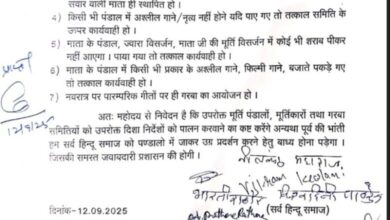 सवार वाली माता ही स्थापित हो।
4) किसी भी पंडाल में अश्लील गाने/नृत्य नहीं होने यदि पाए गए तो तत्काल समिति के
ऊपर कार्यवाही हो।
5) माता के पंडाल, ज्वारा विसर्जन, माता जी की मूर्ति विसर्जन में कोई भी शराब पीकर
नहीं आएगा। पाया गया तो तत्काल कार्यवाही हो।
6) माता के पंडाल में किसी भी प्रकार के अश्लील गाने, फिल्मी गाने, बजाते पकड़े गए
तो तत्काल कार्यवाही हो।
7) नवरात्र पर पारम्परिक गीतों पर ही गरबा का आयोजन हो।
12/9/25
अतः महोदय से निवेदन है कि उपरोक्त मूर्ति पंडालों, मूर्तिकारों तथा गरबा
समितियों को उपरोक्त दिशा निर्देशों का पालन करवाने का कष्ट करेंगे अन्यथा पूर्व की भांती
हम सर्व हिन्दू समाज को पण्डालो में जाकर उग्र प्रदर्शन करने हेतु बाध्य होना पड़ेगा।
जिसकी समस्त जवाबदारी प्रशासन की होगी।
महाराज
(सर्व हिन्दू समाज)
दिनांक-12.09.2025